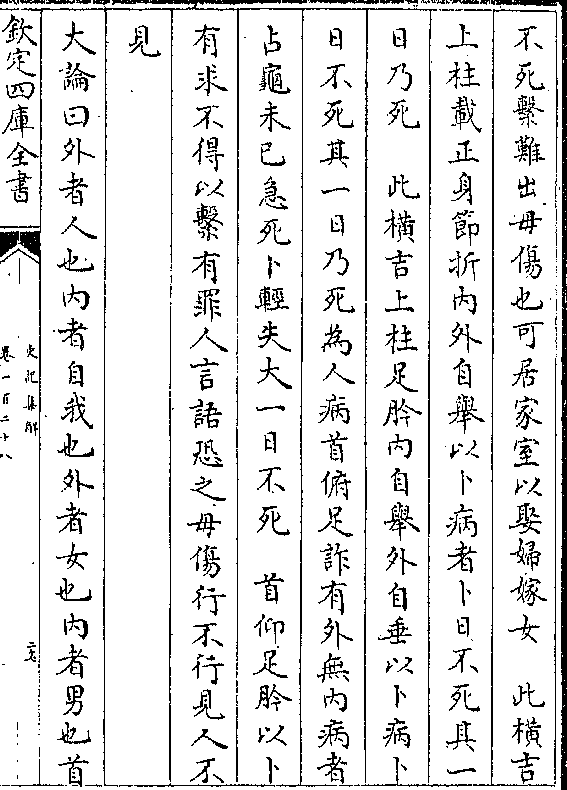 不死繫難出毋傷也可居家室以娶婦嫁女　此橫吉
上柱載正身節折内外自舉以卜病者卜日不死其一
日乃死　此橫吉上柱足肣内自舉外自垂以卜病卜
日不死其一日乃死為人病首俯足詐有外無内病者
占龜未已急死卜輕失大一日不死　首仰足肣以卜
有求不得以繫有罪人言語恐之毋傷行不行見人不
見
大論曰外者人也内者自我也外者女也内者男也首
欽定四庫全書
史記集解
卷一百二十八